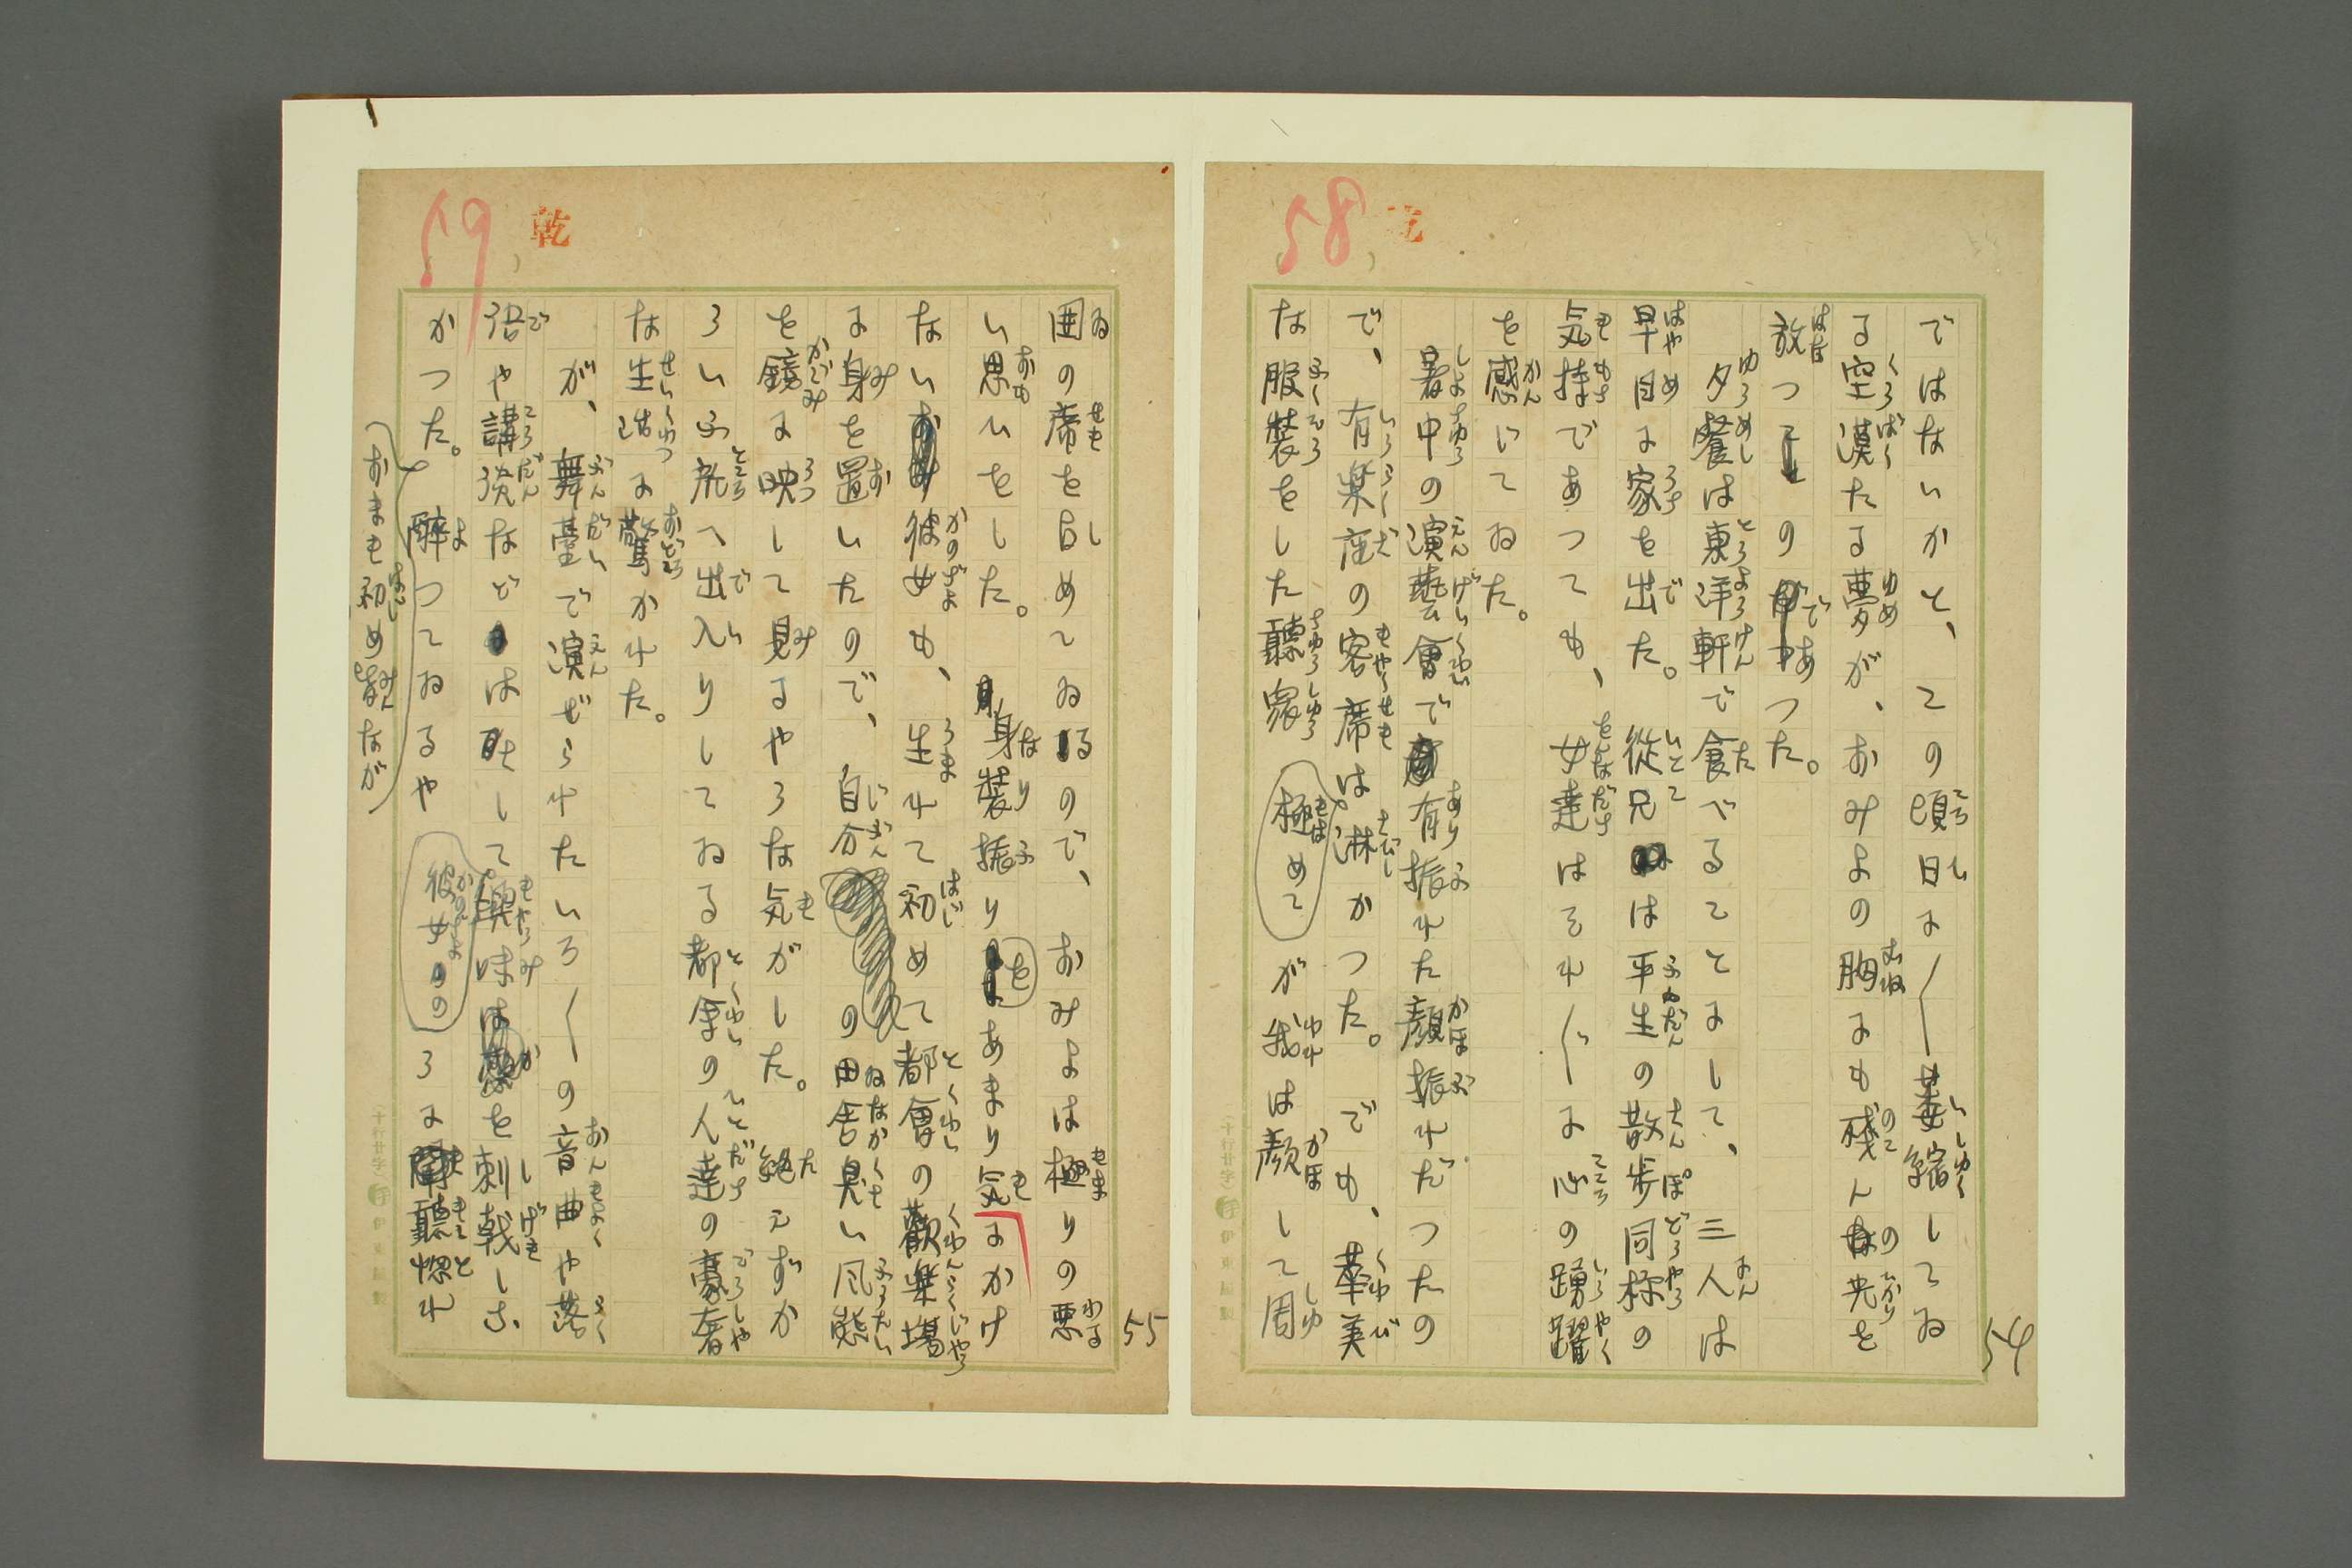 58
54
ではないかと、この頃日に〳〵萎縮してゐ
る空漠たる夢が、おみよの胸にも残んの光を
放つのであつた。
夕餐は東洋軒で食べることにして、三人は
早目に家を出た。從兄は平生の散歩同様の
気持であつても、女達はそれ〴〵に心の踴躍
を感じてゐた。
暑中の演藝會で有振れた顔振れだつたの
で、有楽座の客席は淋かつた。でも、華美
な服装をした聽衆極めてが我は顔して周
59
乾
55
囲の席を占めてゐるので、おみよは極りの悪
い思ひをした。身装振りをあまり気にかけ
ない彼女も、生れて初めて都會の歡楽場
に身を置いたので、自分の田舎臭い風態
を鏡に映して見るやうな気がした。絶えずか
ういふ所へ出入りしてゐる都会の人達の豪奢
な生活に驚かれた。
が、舞臺で演ぜられたいろ〳〵の音曲や落
語や講談などは大して興味は感を刺戟しな
かつた。醉つてゐるや彼女のうに聽惚れ
おまも初め皆なが
十行廿字